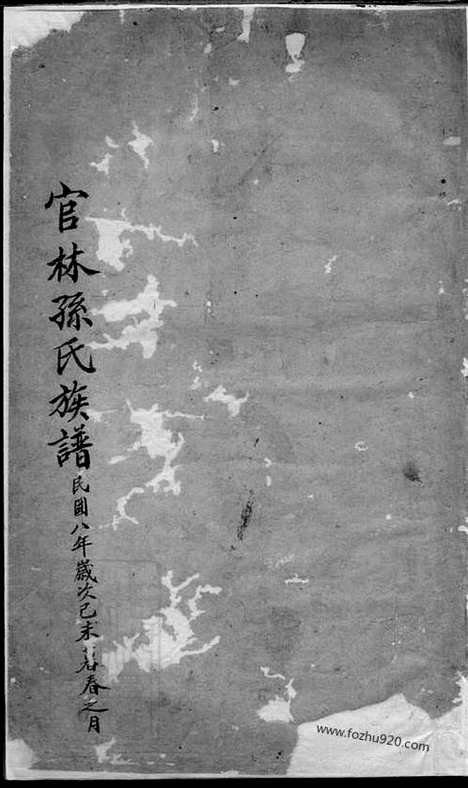 官林孫氏族譜
民國八年歲次己未暮春之月
www.fozhu920.com